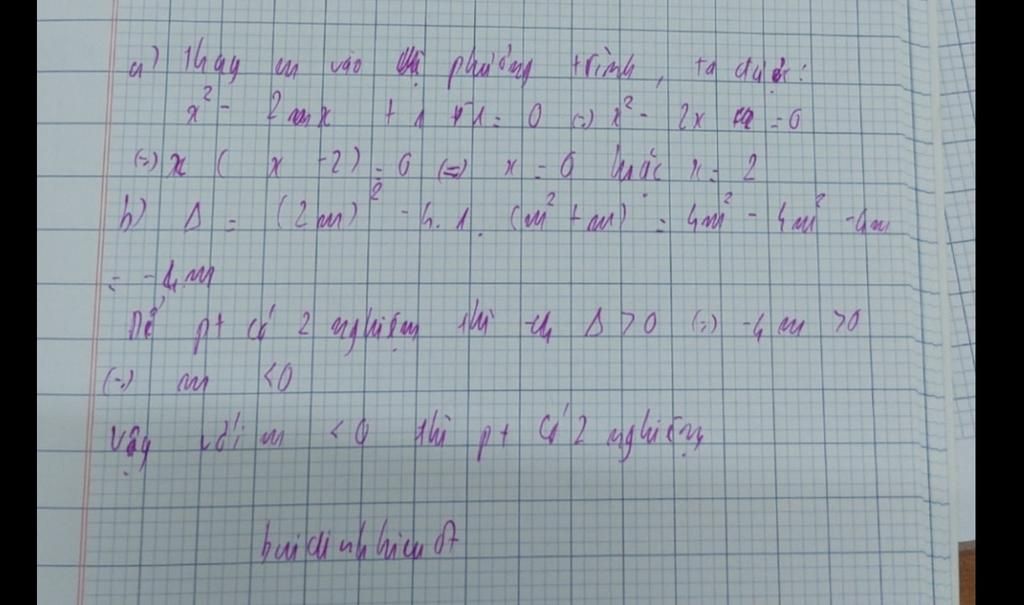 a) Thay m vào phương trình, ta được:
x² - 2mx + 1 + 1 = 0 (=) x² - 2x = 0
(=) x ( x - 2) = 0 (=) x = 0 hoặc x = 2
b) Δ = (2m)² - 4.1. (m² + m) = 4m² - 4m² - 4m
= -4m
Để pt có 2 nghiệm thì Δ > 0 (=) -4m > 0
(=) m < 0
Vậy với m < 0 thì pt có 2 nghiệm